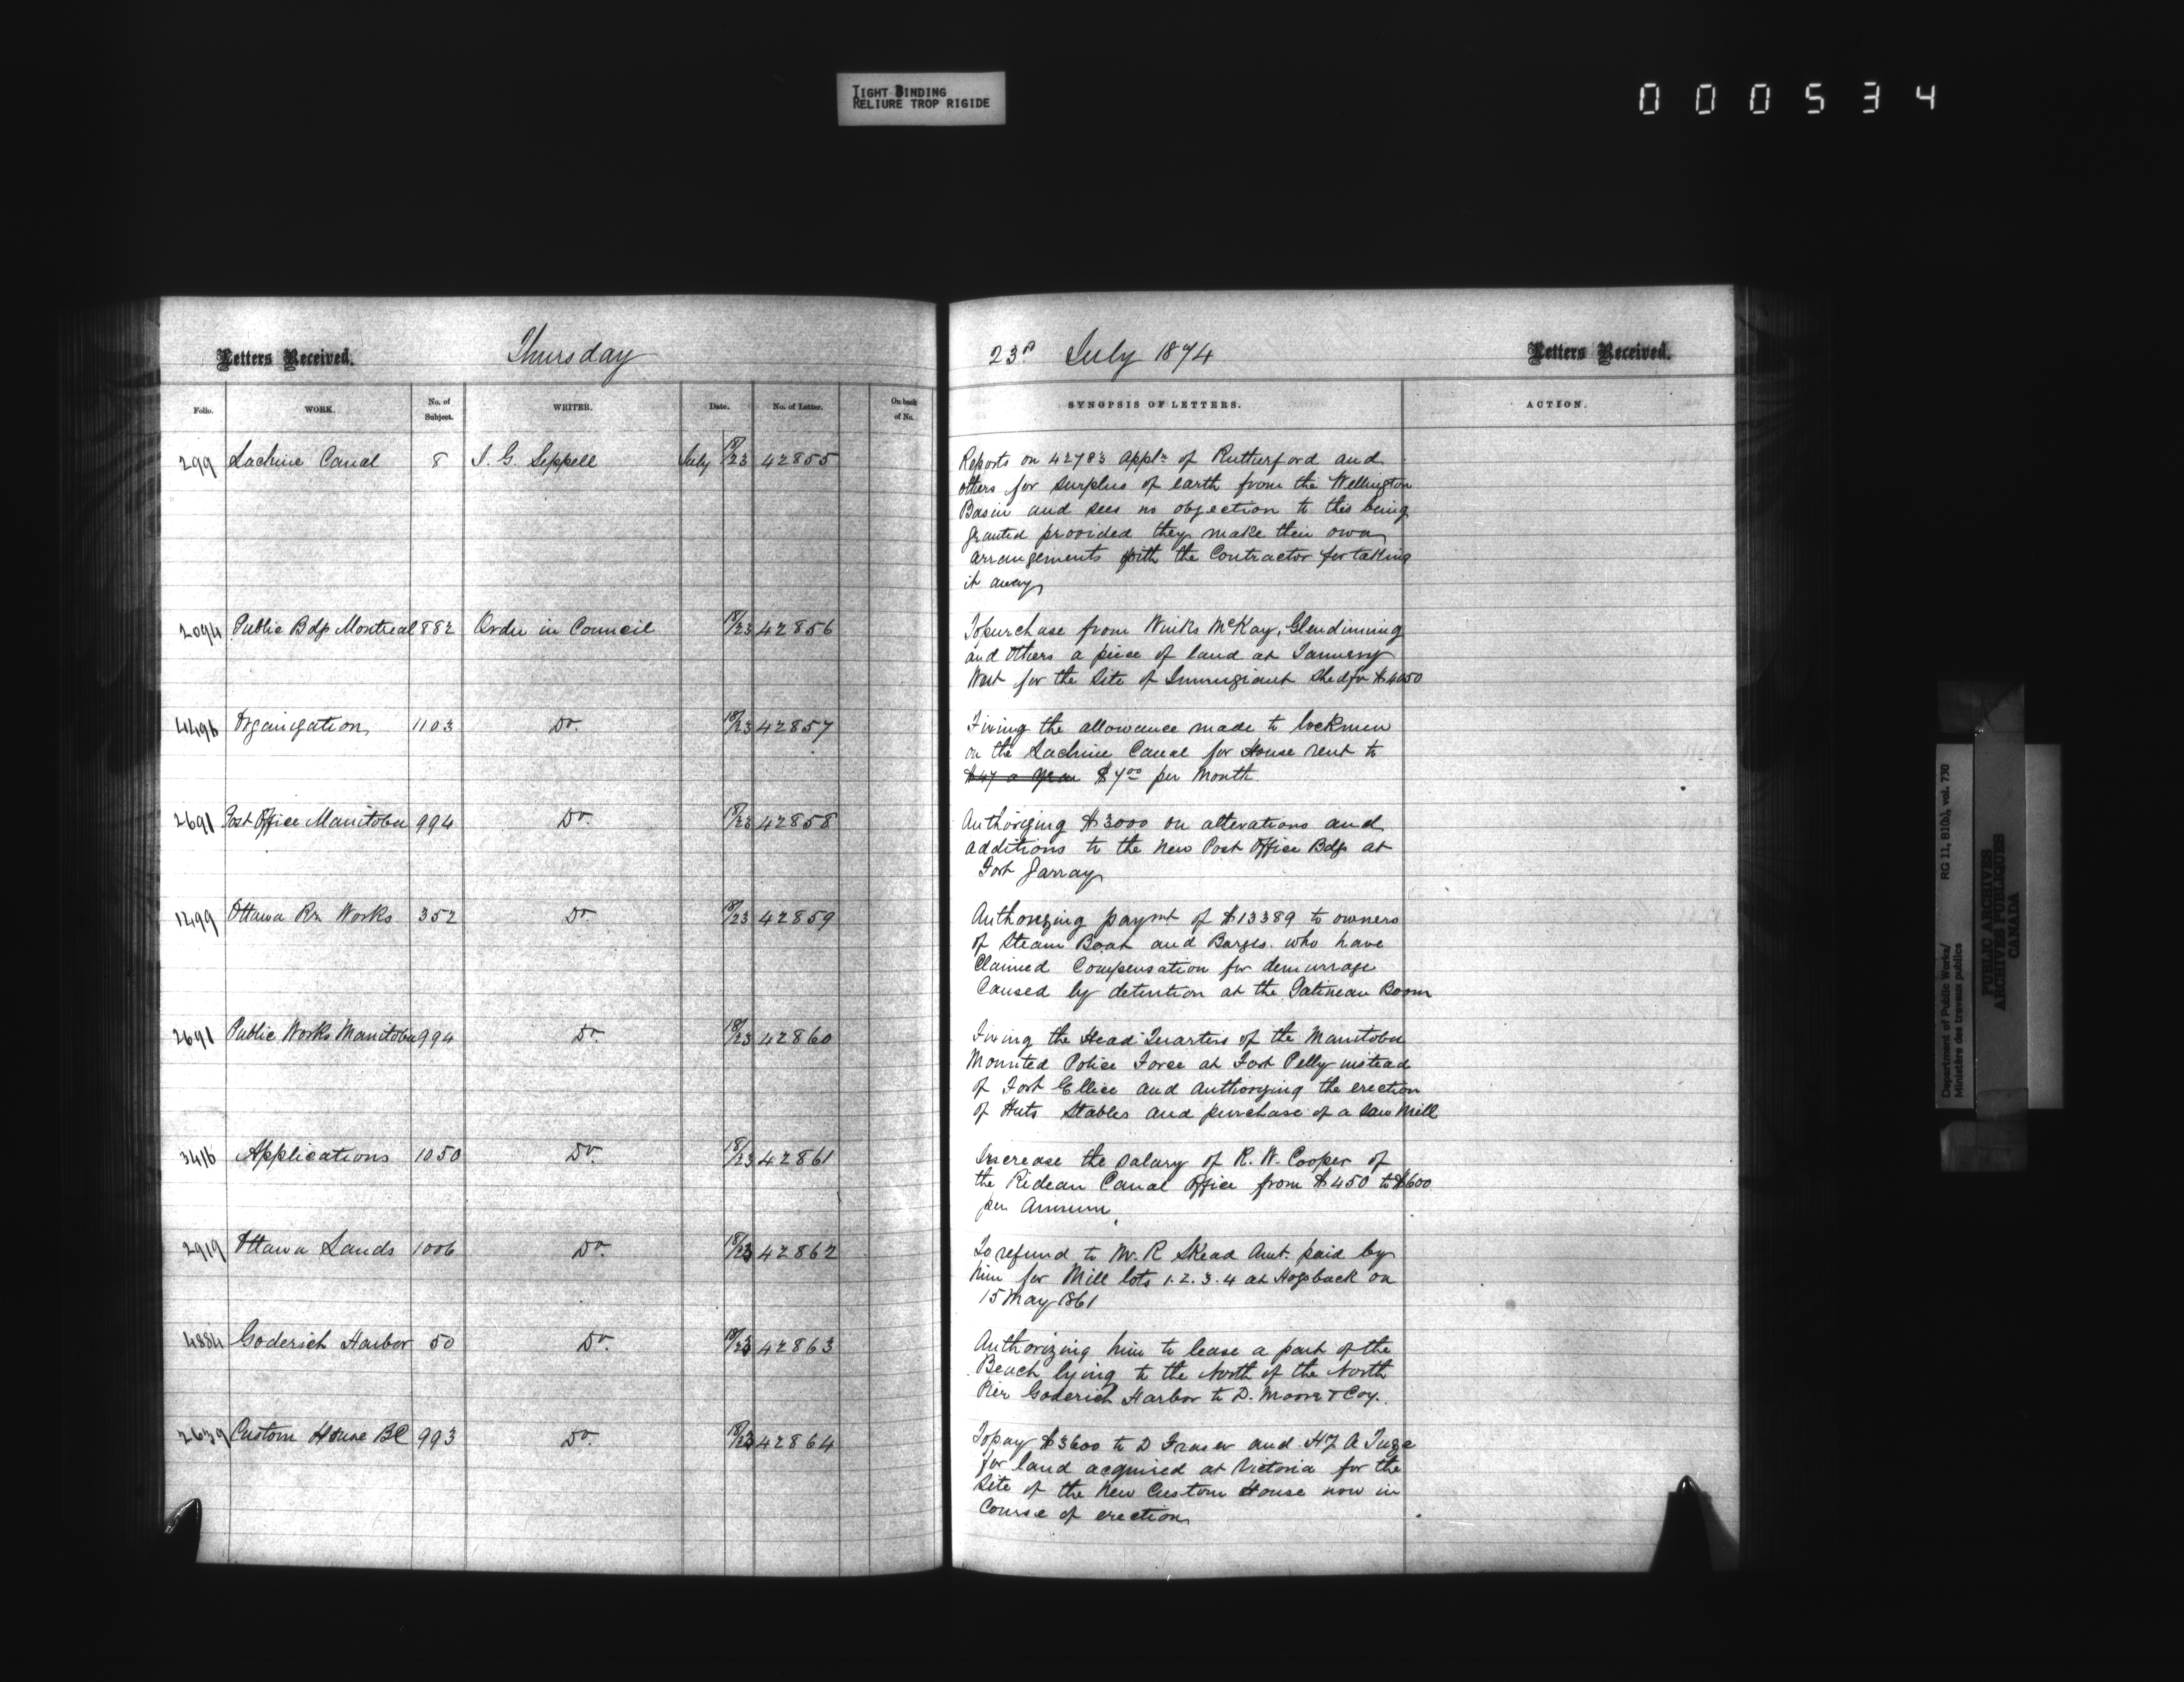 TIGHT BINDING
RELIURE TROP RIGIDE
000534
Letters Received. Thursday 23d July 1874 Letters Received.
Folio. WORK. No. of Subject. WRITER. Date. No. of Letter. On back of No. SYNOPSIS OF LETTERS. ACTION.
299 Lachine Canal 8 J. G. Sippell July 18/23 42855 Reports on 42783 Appln of Rutherford and
others for surplus of earth from the Wellington
Basin and sees no objection to this being
granted provided they make their own
arrangements with the Contractor for taking
it away
2094 Public Bdgs Montreal 882 Order in Council 18/23 42856 To purchase from McKay, Glendinning
and others a piece of land at Tannery
West for the Site of Immigrant Shed for $4050
4496 Organization 1103 Do. 18/23 42857 Fixing the allowance made to lockmen
on the Lachine Canal for House rent to
$47 a year $4.00 per Month
2691 Post Office Manitoba 994 Do. 18/23 42858 Authorizing $3000 on alterations and
additions to the New Post Office Bdgs at
Fort Garray
1299 Ottawa Rr. Works 352 Do 18/23 42859 Authorizing paymt of $13389 to owners
of Steam Boat and Barges who have
Claimed Compensation for demurrage
Caused by detention at the Gatineau Boom
2691 Public Works Manitoba 994 Do. 18/23 42860 Fixing the Head Quarters of the Manitoba
Mounted Police Force at Fort Pelly instead
of Fort Ellice and Authorizing the erection
of Huts Stables and purchase of a Saw Mill
3416 Applications 1050 Do. 18/23 42861 Increase the salary of R. W. Cooper of
the Ridean Canal Office from $450 to $600
per Annum
2919 Ottawa Lands 1006 Do 18/23 42862 To refund to Mr. R Skead Amt. paid by
him for Mill lots 1. 2. 3. 4 at Hogsback on
15 May 1861
4884 Goderich Harbor 50 Do. 18/23 42863 Authorizing him to lease a part of the
Beach lying to the North of the North
Pier Goderich Harbor to D. Moore & Coy.
2639 Custom House BC 993 Do. 18/23 42864 To pay $3600 to D Fraser and
for land acquired at Victoria for the
Site of the New Custom House now in
Course of erection
Department of Public Works/ RG 11, B1(b), vol. 730
Ministère des travaux publics
PUBLIC ARCHIVES
ARCHIVES PUBLIQUES
CANADA